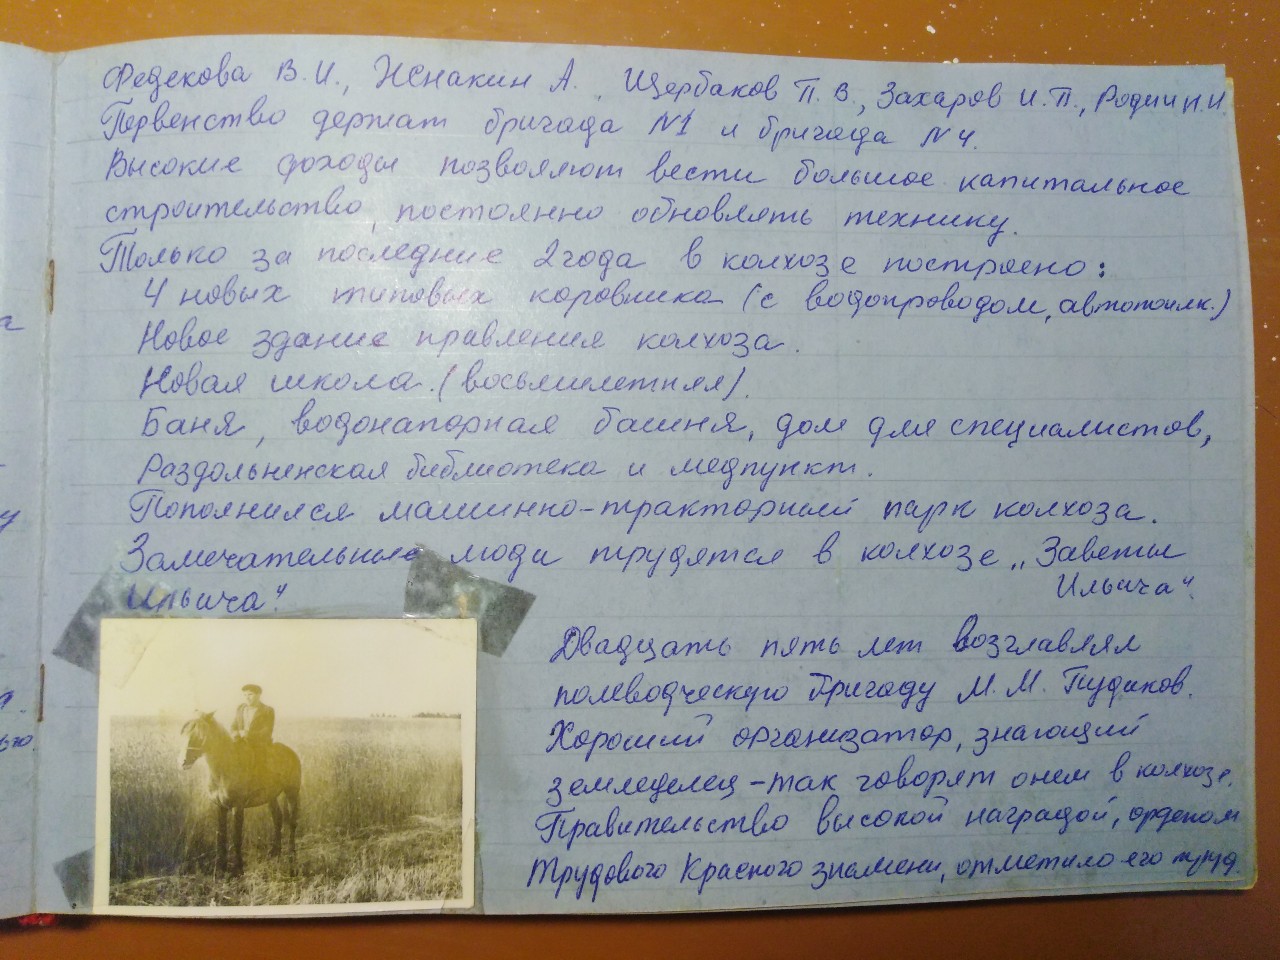 Федекова В. И., Иснакин А., Щербаков П. В., Захаров И. П., Родин Н. И.
Первенство держат бригада №1 и бригада №4.
Высокие доходы позволяют вести большое капитальное
строительство, постоянно обновлять технику.
Только за последние 2 года в колхозе построено:
4 новых типовых коровника (с водопроводом, автопоилк.)
Новое здание правления колхоза.
Новая школа (восьмилетняя).
Баня, водонапорная башня, дом для специалистов,
Раздольненская библиотека и медпункт.
Пополнился машинно-тракторный парк колхоза.
Замечательные люди трудятся в колхозе „Заветы
Ильича“.
Ильича“.
Двадцать пять лет возглавлял
полеводческую бригаду М. М. Пудиков.
Хороший организатор, знающий
земледелец – так говорят о нем в колхозе.
Правительство высокой наградой, орденом
Трудового Красного знамени, отметило его труд.